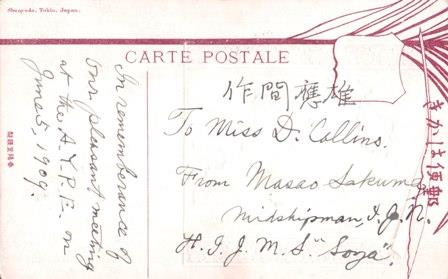 Shueysdo, Tokio, Japan.
CARTE POSTALE
In rememberance of
our pleasant meeting
at the A.Y.P.E. on
June 5, 1909.
作間應雄
To Miss D. Collins.
From Masao Sakuma
Midshipman, I.J.N.
H.I.J.M.S. "Soya".
きかは便郵